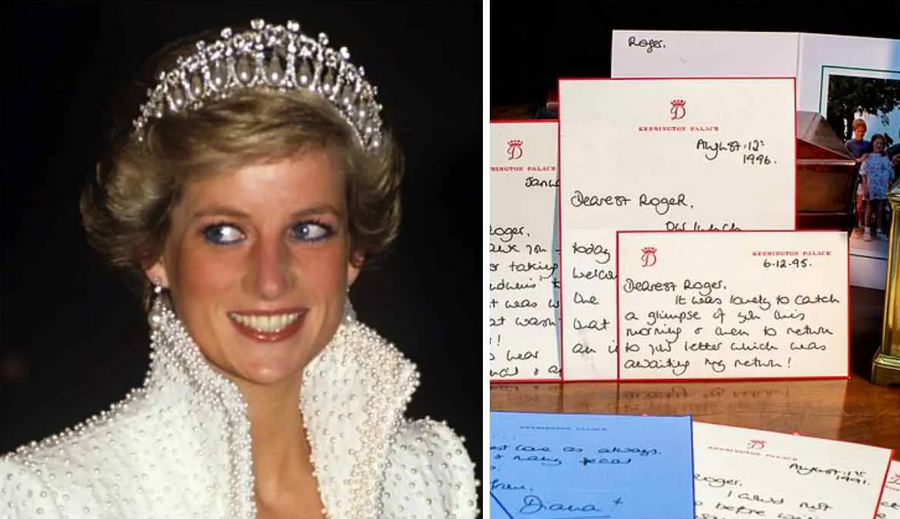 Roger.
D
KENSINGTON PALACE
August 12th
1996.
Dearest Roger,
Our lunch
today
welco
the
that
an i
D
NINGTON PALACE
Janua
Roger,
taking
it was w
at wasn'
!
hear
D
KENSINGTON PALACE
6-12-95.
Dearest Roger,
It was lovely to catch
a glimpse of you this
morning & then to return
to your letter which was
awaiting my return!
KENSINGTON PALACE
est love as always,
& many
from,
Diana x
D
KENSINGTON PALACE
August
1991.
Roger,
I could not
before